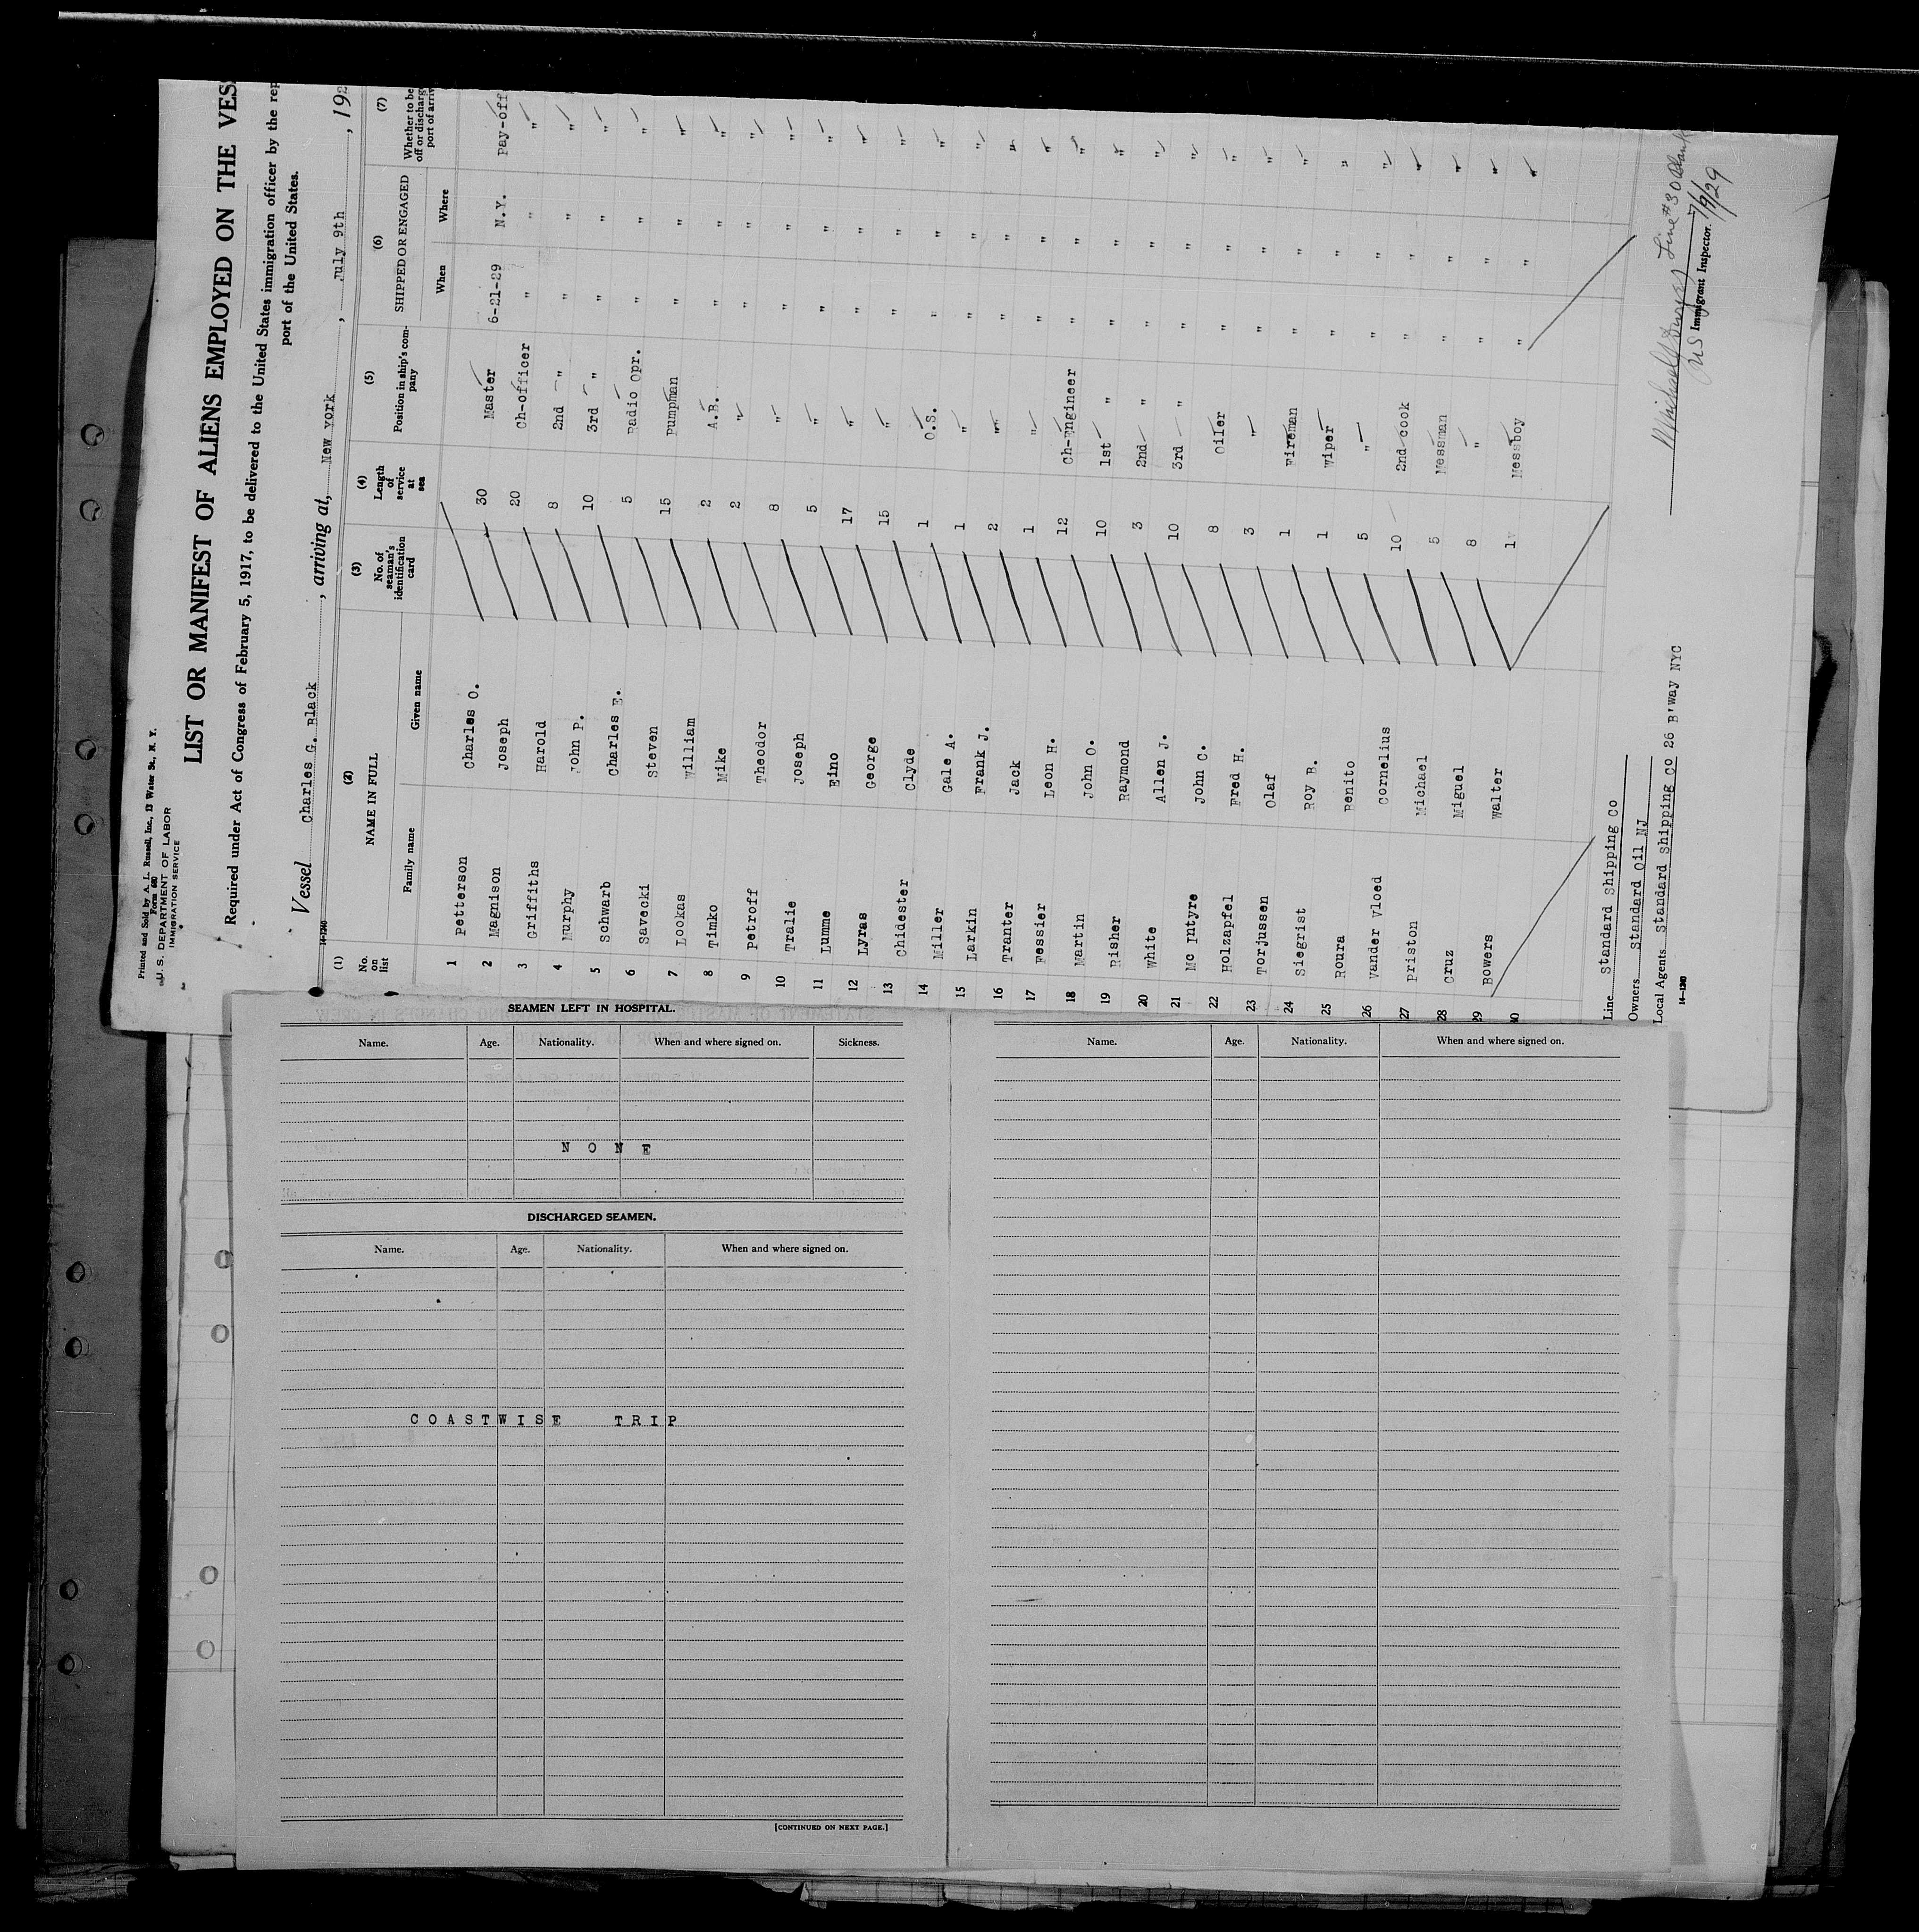 Printed and Sold by A. L. Russell, Inc., 13 Water St., N. Y.
Form 680
U. S. DEPARTMENT OF LABOR
IMMIGRATION SERVICE
LIST OR MANIFEST OF ALIENS EMPLOYED ON THE VES
Required under Act of Congress of February 5, 1917, to be delivered to the United States immigration officer by the rep
port of the United States.
Vessel Charles G. Black, arriving at, New York, July 9th, 192
14-1240
(1) (2) (3) (4) (5) (6) (7)
No. on list NAME IN FULL No. of seaman's identification card Length of service at sea Position in ship's company SHIPPED OR ENGAGED Whether to be off or discharg port of arriv
Family name Given name When Where
1 Petterson Charles O. 30 Master 6-21-29 N.Y. Pay-off
2 Magnison Joseph 20 Ch-officer " " "
3 Griffiths Harold 8 2nd " " " "
4 Murphy John P. 10 3rd " " " "
5 Schwarb Charles E. 5 Radio Opr. " " "
6 Savecki Steven 15 Pumpman " " "
7 Lookas William 2 A.B. " " "
8 Timko Mike 2 " " " "
9 Petroff Theodor 8 " " " "
10 Tralie Joseph 5 " " " "
11 Lumme Eino 17 " " " "
12 Lyras George 15 " " " "
13 Chidester Clyde 1 O.S. " " "
14 Miller Gale A. 1 " " " "
15 Larkin Frank J. 2 " " " "
16 Tranter Jack 1 " " " "
17 Fessier Leon H. 12 Ch-Engineer " " "
18 Martin John O. 10 1st " " " "
19 Risher Raymond 3 2nd " " " "
20 White Allen J. 10 3rd " " " "
21 Mc Intyre John C. 8 Oiler " " "
22 Holzapfel Fred H. 3 " " " "
23 Torjussen Olaf 1 Fireman " " "
24 Siegrist Roy B. 1 Wiper " " "
25 Roura Benito 5 " " " "
26 Vander Vloed Cornelius 10 2nd cook " " "
27 Priston Michael 5 Messman " " "
28 Cruz Miguel 8 " " " "
29 Bowers Walter 1 Messboy " " "
30
Line Standard Shipping Co
Owners Standard Oil NJ
Local Agents Standard Shipping Co 26 B'way NYC
14-1240
Line #30 Blank
US Immigrant Inspector. 7/9/29
SEAMEN LEFT IN HOSPITAL.
Name. Age. Nationality. When and where signed on. Sickness.
NONE
DISCHARGED SEAMEN.
Name. Age. Nationality. When and where signed on.
COASTWISE TRIP
[CONTINUED ON NEXT PAGE.]
Name. Age. Nationality. When and where signed on.